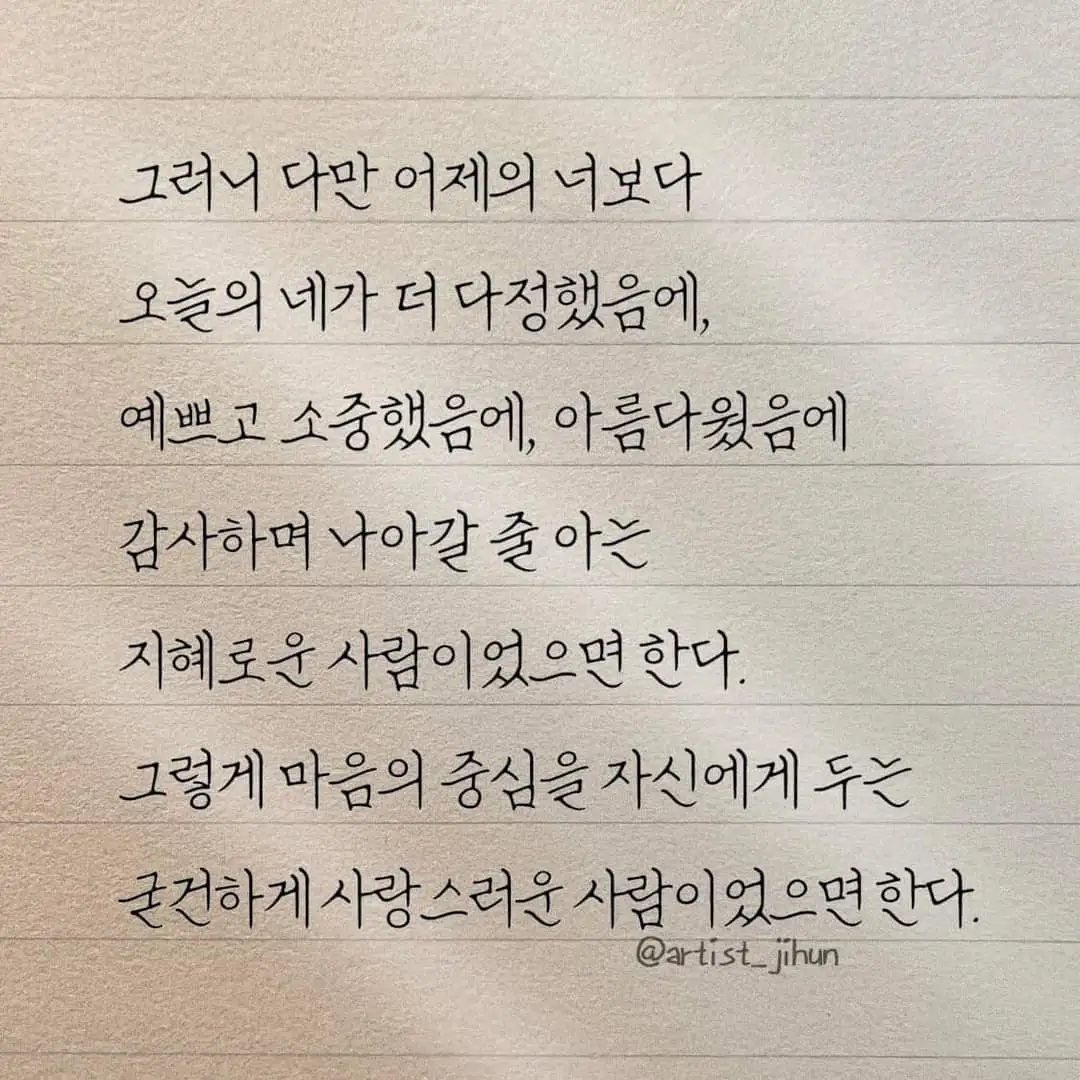 그러니 다만 어제의 너보다
오늘의 네가 더 다정했음에,
예쁘고 소중했음에, 아름다웠음에
감사하며 나아갈 줄 아는
지혜로운 사람이었으면 한다.
그렇게 마음의 중심을 자신에게 두는
굳건하게 사랑스러운 사람이었으면 한다.
@artist_jihun